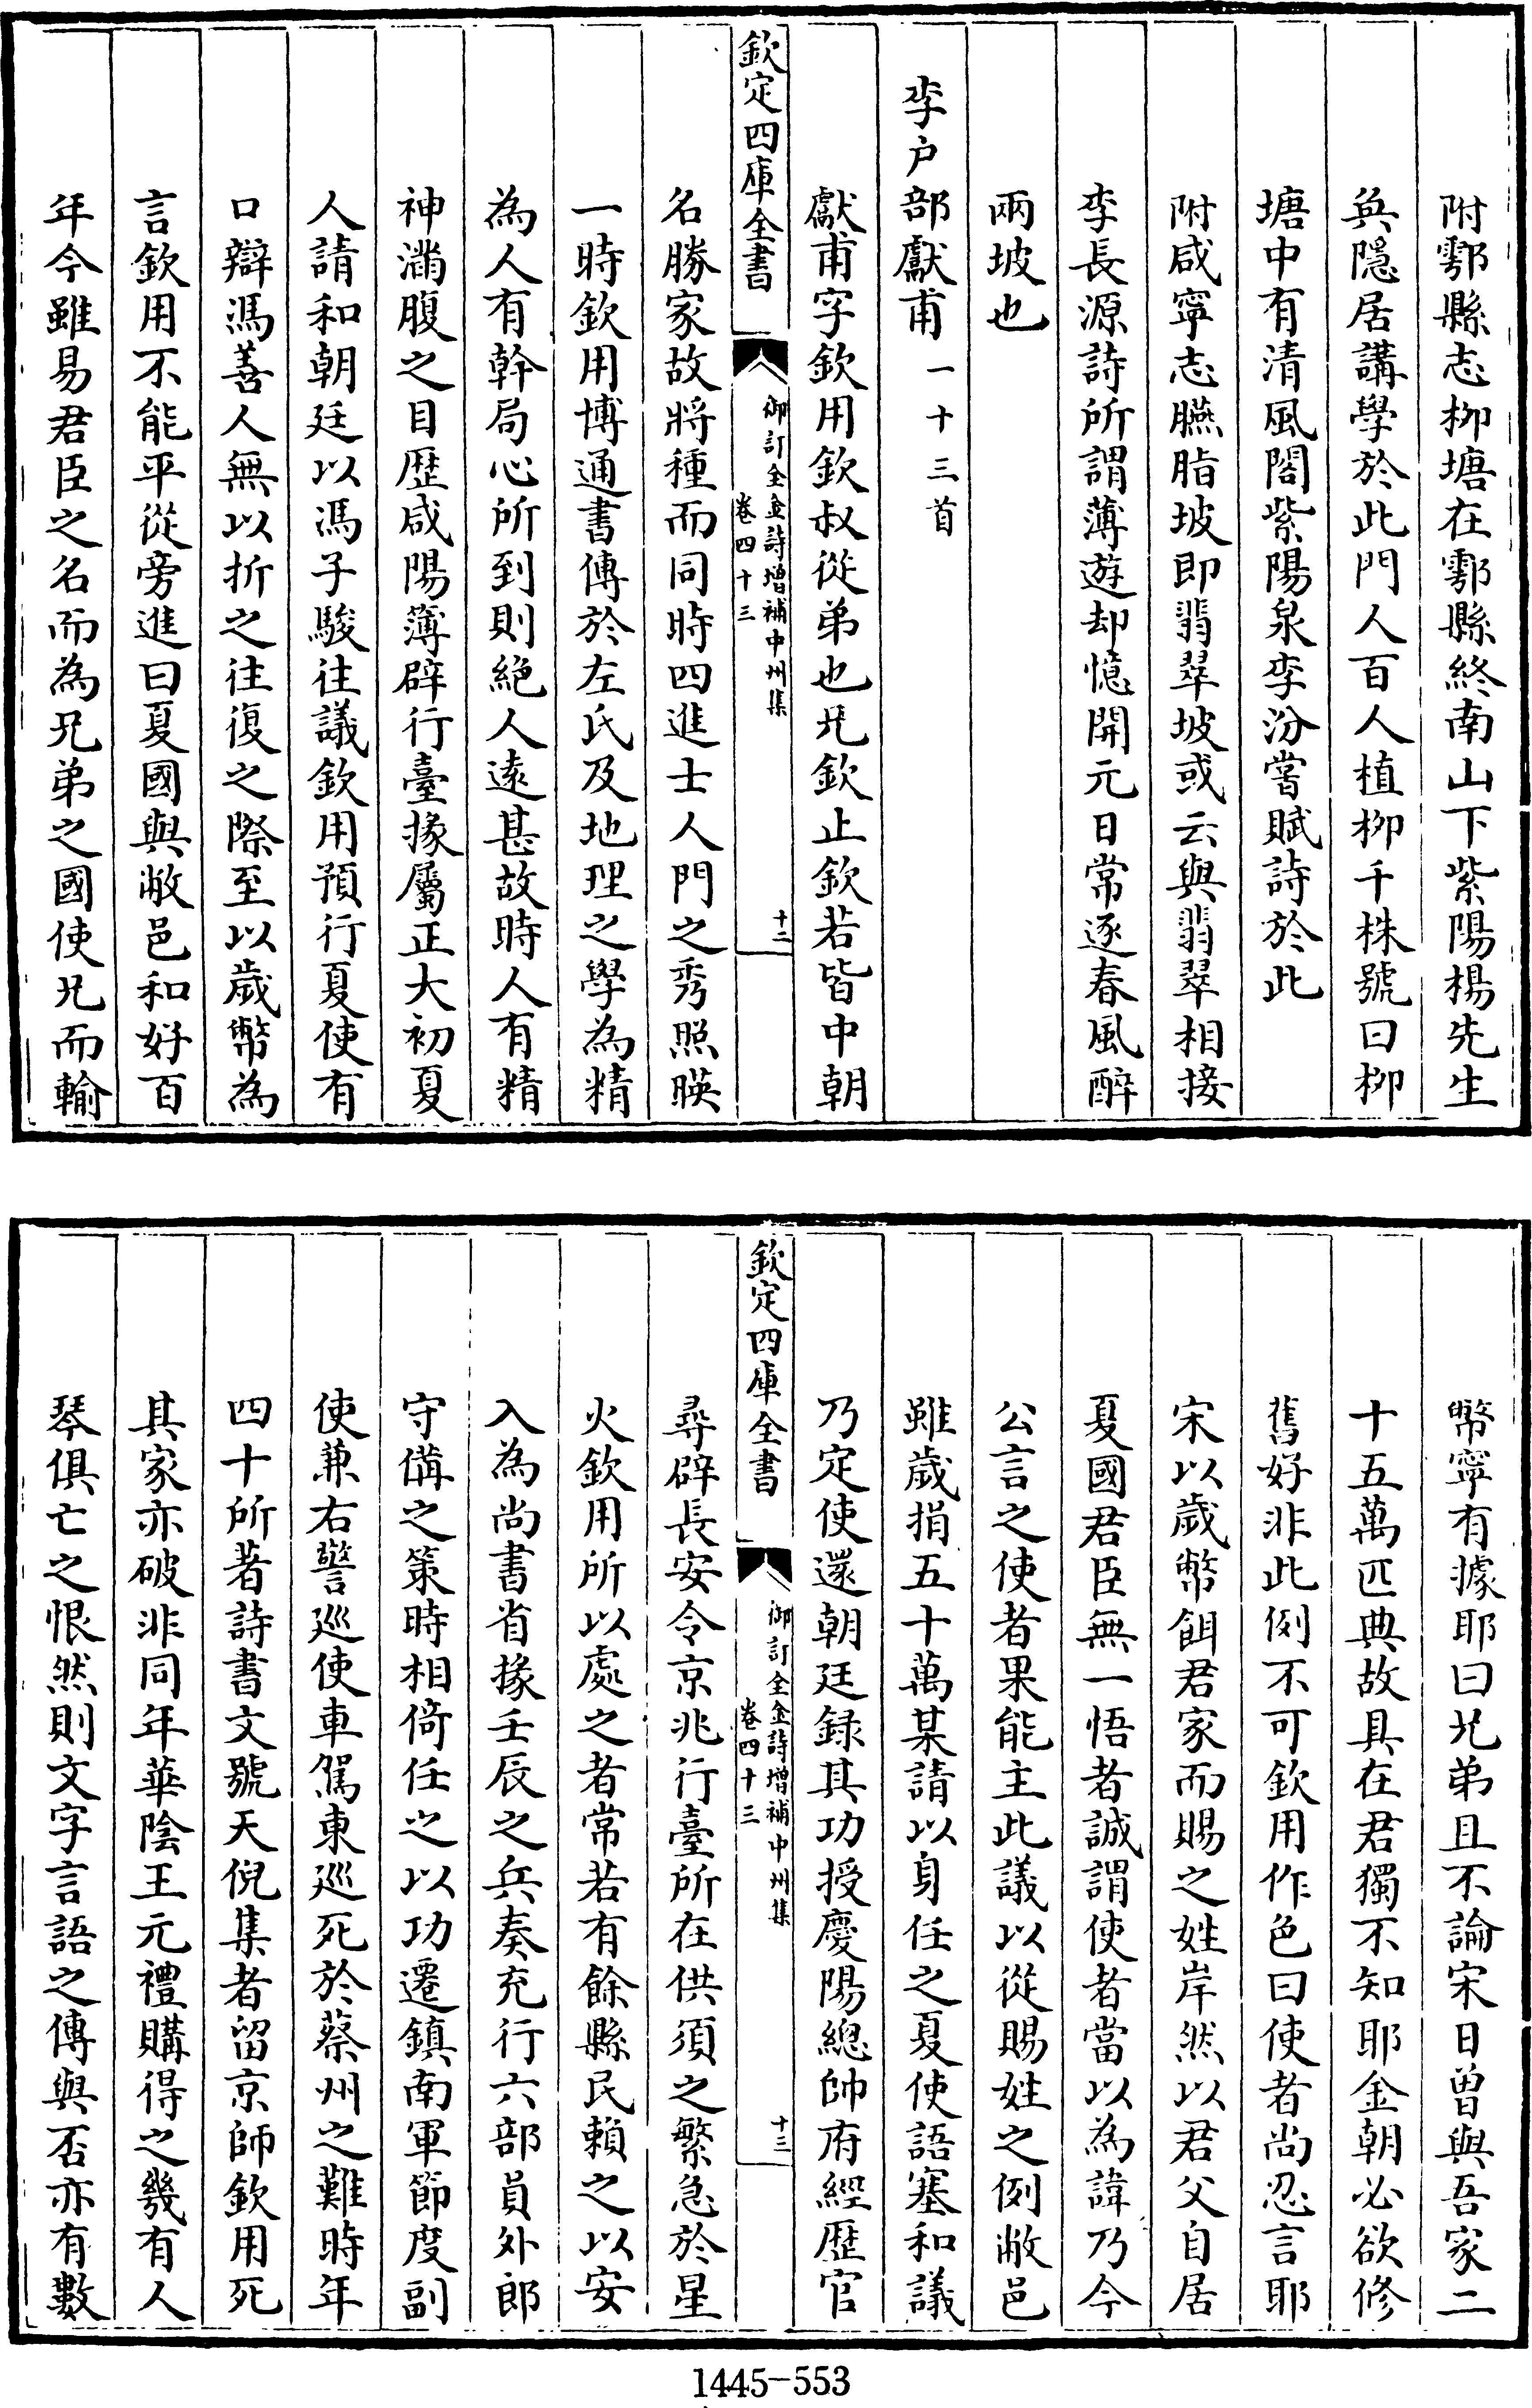 附鄠縣志柳塘在鄠縣終南山下紫陽楊先生
奐隱居講學於此門人百人植柳千株號曰柳
塘中有清風閣紫陽泉李汾嘗賦詩於此
附咸寧志臙脂坡即翡翠坡或云與翡翠相接
李長源詩所謂薄遊却憶開元日常逐春風醉
兩坡也
李户部獻甫一十三首
獻甫字欽用欽叔從弟也兄欽止欽若皆中朝
欽定四庫全書
御訂全金詩增補中州集
卷四十三
十二
名勝家故將種而同時四進士人門之秀照映
一時欽用博通書傳於左氏及地理之學為精
為人有幹局心所到則絶人逺甚故時人有精
神滿腹之目歴咸陽簿辟行臺掾屬正大初夏
人請和朝廷以馮子駿往議欽用預行夏使有
口辯馮善人無以折之往復之際至以歲幣為
言欽用不能平從旁進曰夏國與敝邑和好百
年今雖易君臣之名而為兄弟之國使兄而輸
幣寧有據耶曰兄弟且不論宋日曽與吾家二
十五萬匹典故具在君獨不知耶金朝必欲修
舊好非此例不可欽用作色曰使者尚忍言耶
宋以歲幣餌君家而賜之姓岸然以君父自居
夏國君臣無一悟者誠謂使者當以為諱乃今
公言之使者果能主此議以從賜姓之例敝邑
雖歲捐五十萬某請以身任之夏使語塞和議
乃定使還朝廷録其功授慶陽總帥府經歴官
欽定四庫全書
御訂全金詩增補中州集
卷四十三
十三
尋辟長安令京兆行臺所在供須之繁急於星
火欽用所以處之者常若有餘縣民賴之以安
入為尚書省掾壬辰之兵奏充行六部員外郎
守備之策時相倚任之以功遷鎮南軍節度副
使兼右警巡使車駕東巡死於蔡州之難時年
四十所著詩書文號天倪集者留京師欽用死
其家亦破非同年華陰王元禮購得之幾有人
琴俱亡之恨然則文字言語之傳與否亦有數
1445-553